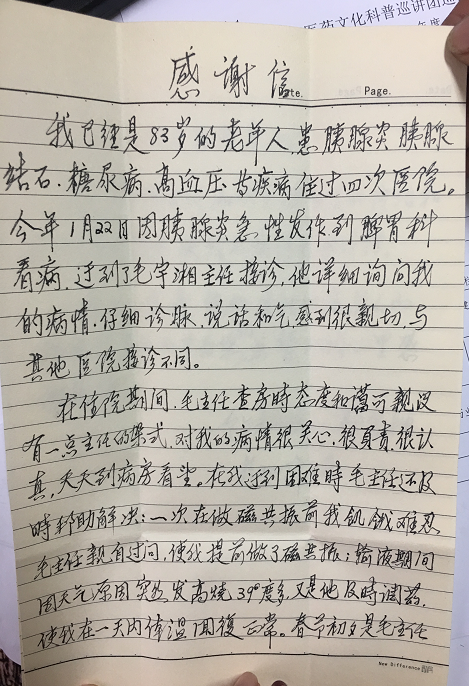 医药文化科普巡讲团
年度
感谢信
Date.
Page.
我已经是83岁的老年人,患胰腺炎胰腺
结石、糖尿病、高血压等疾病住过四次医院。
今年1月22日因胰腺炎急性发作到脾胃科
看病,迂到了毛宇湘主任接诊,他详细询问我
的病情,仔细诊脉,说话和气,感到很親切,与
其他医院接诊不同。
在住院期间,毛主任查房時态度和蔼可親没
有一点主任的架式,对我的病情很关心,很負责,很认
真,天天到病房看望。在我迂到困难時毛主任还及
時邦助解决:一次在做磁共振前我饥饿难忍
毛主任親自过问,使我提前做了磁共振;输液期间
因天气原因突然发高烧39°度多,又是他及時调药,
使我在一天内体温回復正常。春节初夕是毛主任
New Difference